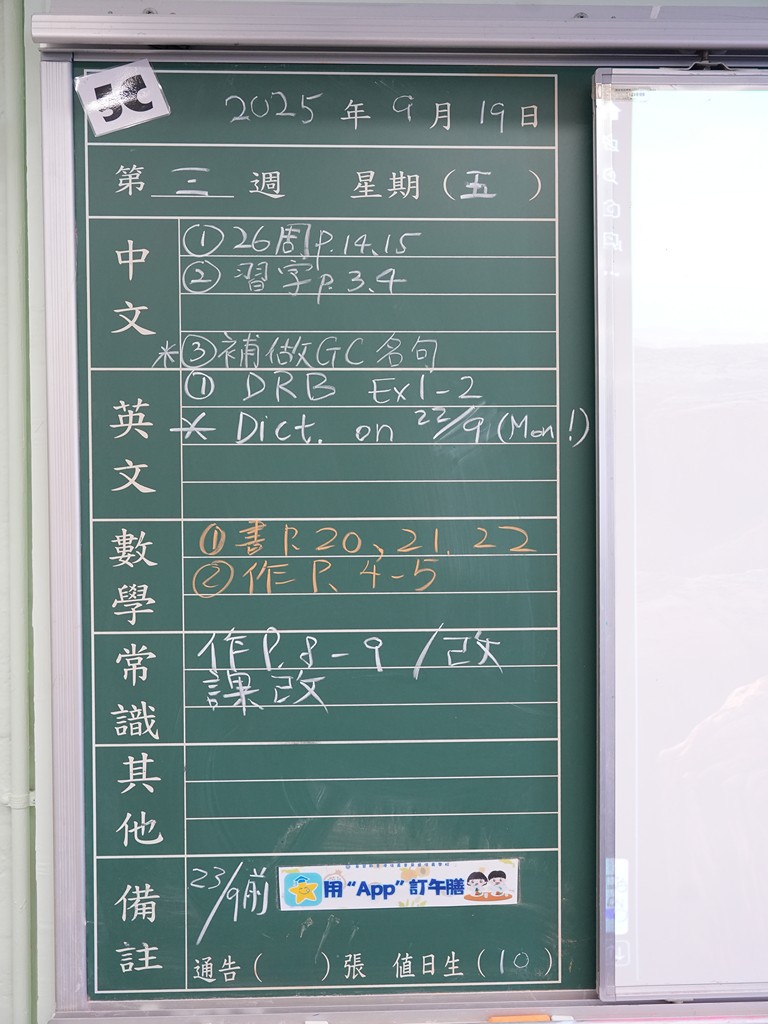 5C
2025 年 9 月 19 日
第 三 週 星期 (五)
中文
① 26周 p.14,15
② 習字 p.3,4
*③ 補做GC名句
英文
① DRB Ex1-2
* Dict. on 22/9 (Mon!)
數學
① 書 P. 20、21. 22
② 作 P. 4-5
常識
作 P. 8-9 /改
課改
其他
備註
23/9前 用“App”訂午膳
通告 ( ) 張 值日生 (10)